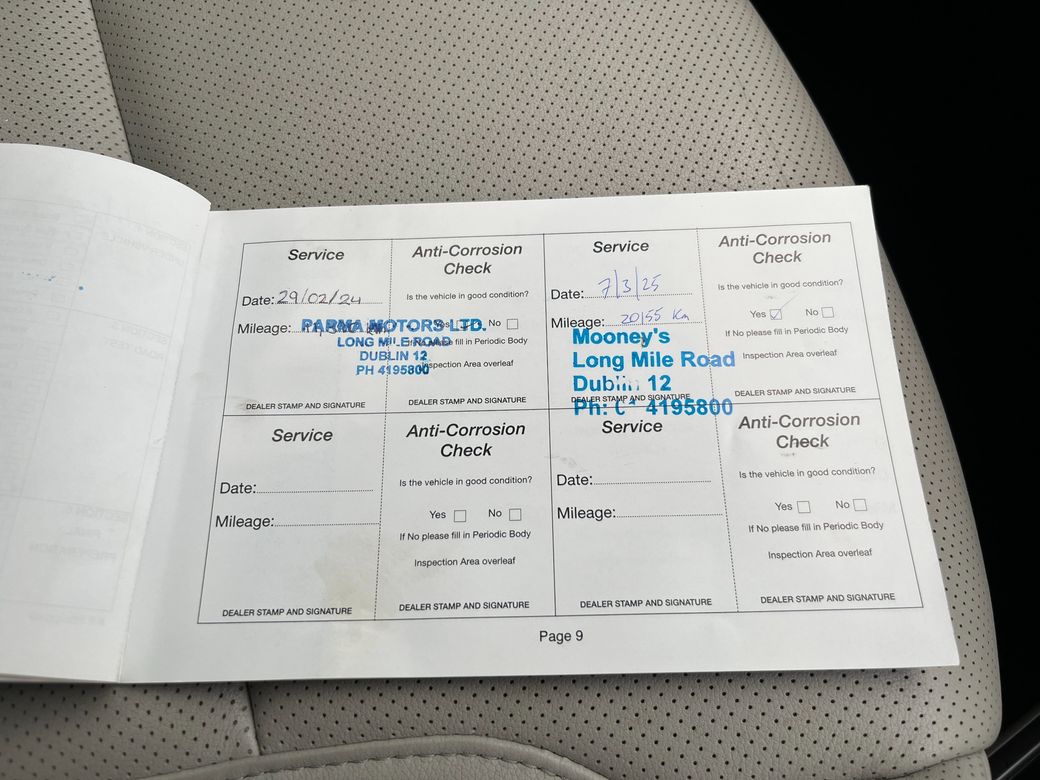 Service
Date: 29/02/24
Mileage:
PARMA MOTORS LTD.
LONG MILE ROAD
DUBLIN 12
PH 4195800
DEALER STAMP AND SIGNATURE
Anti-Corrosion
Check
Is the vehicle in good condition?
Yes No
If No please fill in Periodic Body
Inspection Area overleaf
DEALER STAMP AND SIGNATURE
Service
Date: 7/3/25
Mileage: 20155 Km
Mooney's
Long Mile Road
Dublin 12
Ph: 4195800
DEALER STAMP AND SIGNATURE
Anti-Corrosion
Check
Is the vehicle in good condition?
Yes No
If No please fill in Periodic Body
Inspection Area overleaf
DEALER STAMP AND SIGNATURE
Service
Date:
Mileage:
DEALER STAMP AND SIGNATURE
Anti-Corrosion
Check
Is the vehicle in good condition?
Yes No
If No please fill in Periodic Body
Inspection Area overleaf
DEALER STAMP AND SIGNATURE
Service
Date:
Mileage:
DEALER STAMP AND SIGNATURE
Anti-Corrosion
Check
Is the vehicle in good condition?
Yes No
If No please fill in Periodic Body
Inspection Area overleaf
DEALER STAMP AND SIGNATURE
Page 9